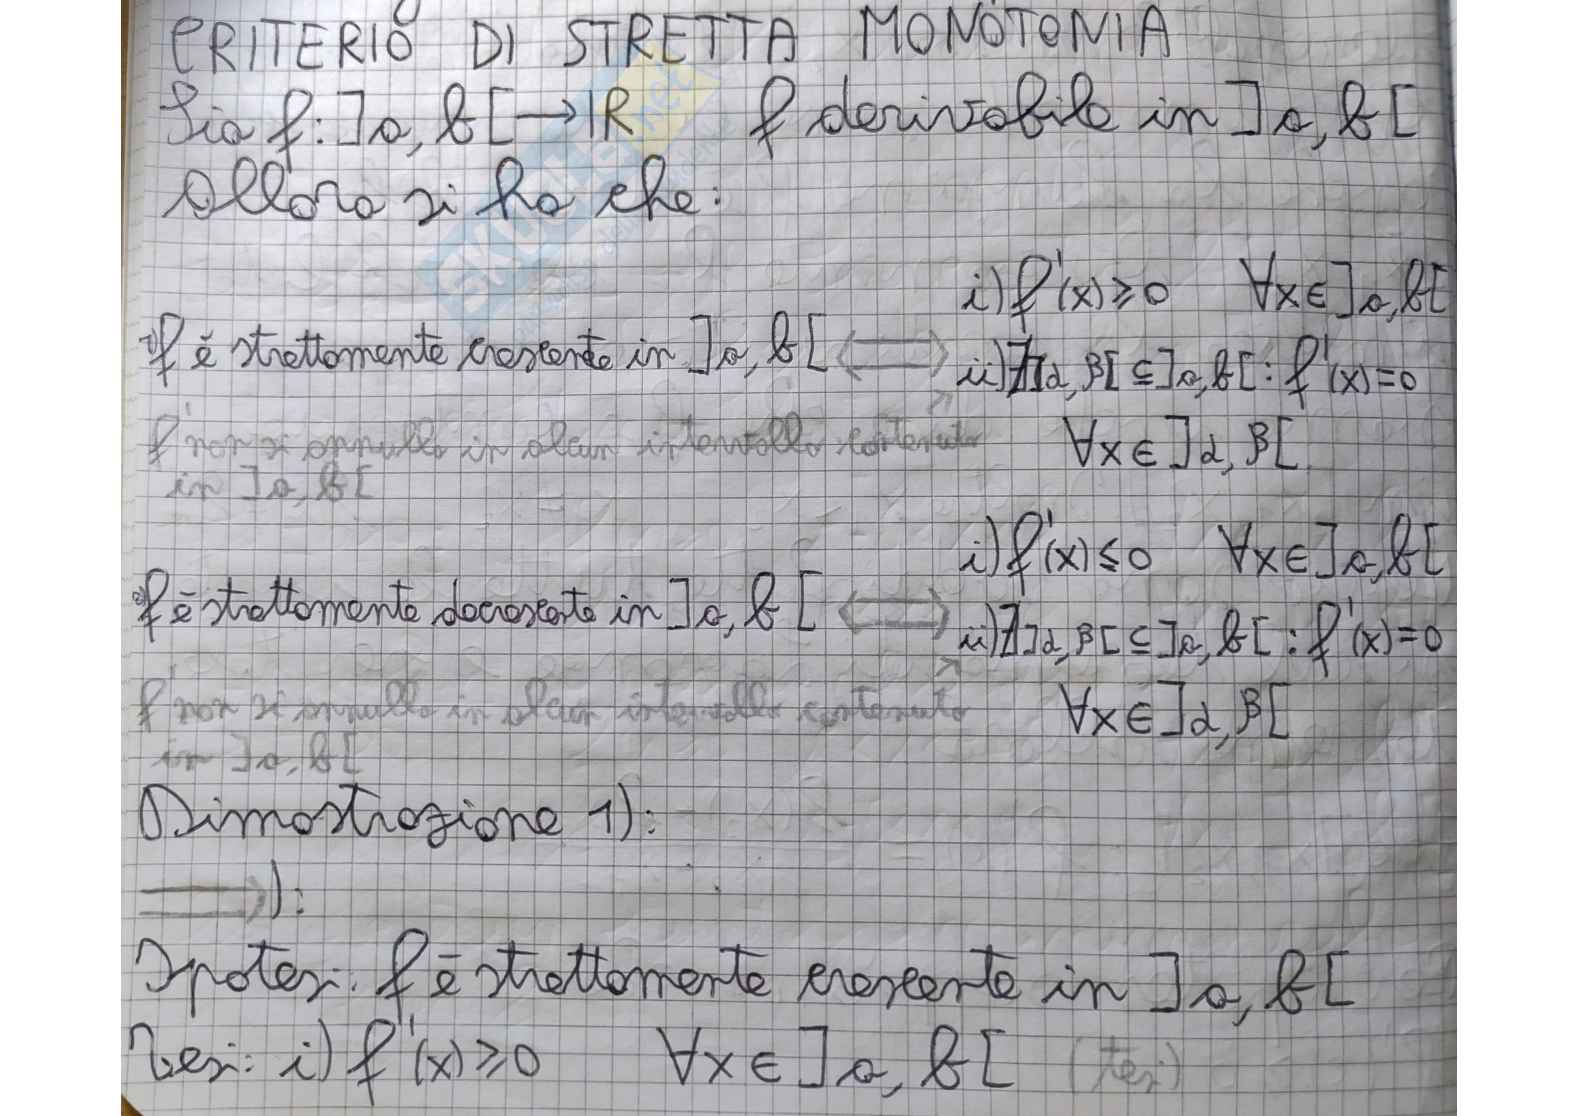 CRITERIO DI STRETTA MONOTONIA
Sia f: ]a, b[ → ℝ f derivabile in ]a, b[
Allora si ha che:
i) f'(x) ≥ 0 ∀x ∈ ]a, b[
1) f è strettamente crescente in ]a, b[ ⟺ ii) ∄ ]α, β[ ⊆ ]a, b[ : f'(x) = 0
∀x ∈ ]α, β[
f' non si annulla in alcun intervallo contenuto
in ]a, b[
i) f'(x) ≤ 0 ∀x ∈ ]a, b[
2) f è strettamente decrescente in ]a, b[ ⟺ ii) ∄ ]α, β[ ⊆ ]a, b[ : f'(x) = 0
∀x ∈ ]α, β[
f' non si annulla in alcun intervallo contenuto
in ]a, b[
Dimostrazione 1):
⟹):
Ipotesi: f è strettamente crescente in ]a, b[
Tesi: i) f'(x) ≥ 0 ∀x ∈ ]a, b[ (tesi)